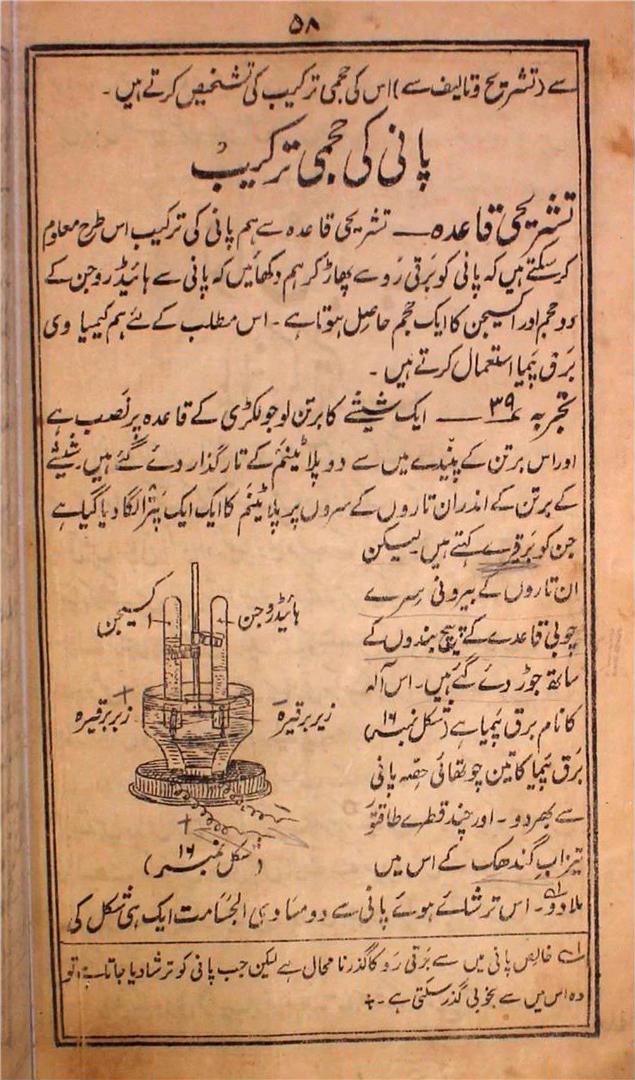 ۵۸
سے (تشریح و تالیف سے) اس کی حجمی ترکیب کی تشخیص کرتے ہیں۔
پانی کی حجمی ترکیب
تشریحی قاعدہ — تشریحی قاعدہ سے ہم پانی کی ترکیب اس طرح معلوم
کرسکتے ہیں کہ پانی کو برقی رَو سے پھاڑ کر ہم دکھائیں کہ پانی سے ہائیڈروجن کے
دو حجم اور آکسیجن کا ایک حجم حاصل ہوتا ہے۔ اس مطلب کے لئے ہم کیمیاوی
برق پیما استعمال کرتے ہیں۔
تجربہ ۳۹ — ایک شیشے کا برتن لو جو لکڑی کے قاعدہ پر نصب ہے
اور اس برتن کے پیندے میں سے دو پلاٹینم کے تار گذار دئے گئے ہیں۔ شیشے
کے برتن کے اندر ان تاروں کے سروں پر پلاٹینم کا ایک ایک پترا لگا دیا گیا ہے
جن کو برقیرے کہتے ہیں لیکن
ان تاروں کے بیرونی سرے
چوبی قاعدے کے پیچ بندوں کے
ساتھ جوڑ دئے گئے ہیں۔ اس آلہ
کا نام برق پیما ہے (شکل نمبر ۱۶)
برق پیما کا تین چوتھائی حصہ پانی
سے بھر دو۔ اور چند قطرے طاقتور
تیزاب گندھک کے اس میں
ہائیڈروجن
آکسیجن
زیر برقیرہ −
+ زبر برقیرہ
+ −
(شکل نمبر ۱۶)
ملا دو۔ اس ترشائے ہوئے پانی سے دو مساوی الجسامت ایک ہی شکل کی
لے خالص پانی میں سے برقی رَو کا گذرنا محال ہے لیکن جب پانی کو ترشا دیا جاتا ہے تو
وہ اس میں سے بخوبی گذر سکتی ہے۔